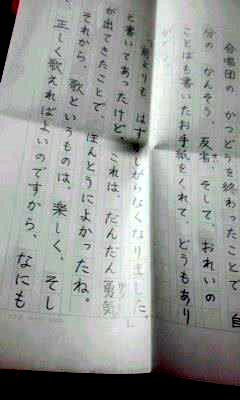 合唱団の かつどうを終わった 自
分の かんそう、反省、そして、おれいの
ことばも書いたお手紙をくれて、どうもあり
前よりも はずかしがらなくなりました。
と書いてあったけど これは、だんだん勇気
が出てきたことで、ほんとうによかったね。
それから、歌というものは、楽しく、そし
正しく歌えればよいのですから、なにも